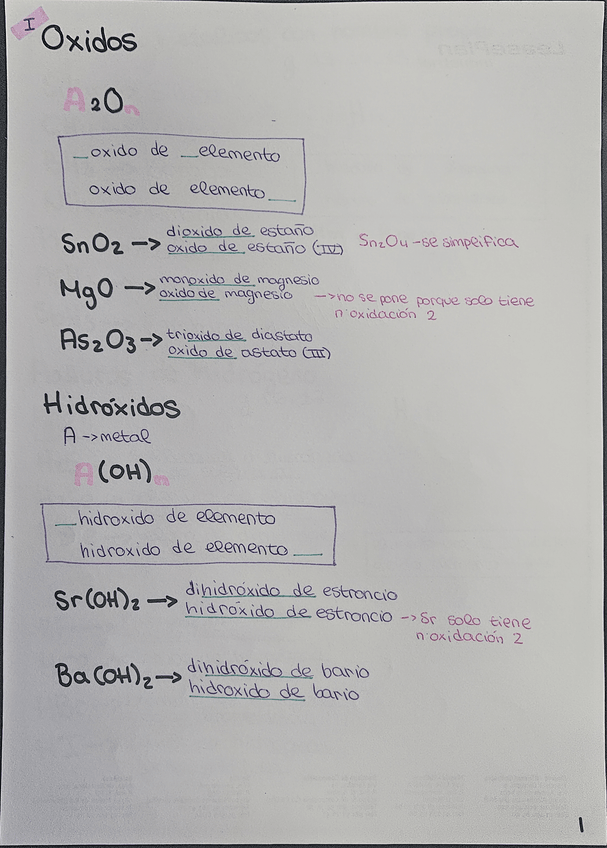 I
Oxidos
A2On
_oxido de _elemento
oxido de elemento__
SnO2 -> dioxido de estaño
oxido de estaño (IV)
Sn2O4 - se simplifica
MgO -> monoxido de magnesio
oxido de magnesio -> no se pone porque solo tiene
nºoxidación 2
As2O3 -> trioxido de diastato
oxido de astato (III)
Hidróxidos
A -> metal
A(OH)n
__hidroxido de elemento
hidroxido de elemento ___
Sr(OH)2 -> dihidróxido de estroncio
hidróxido de estroncio -> Sr solo tiene
nºoxidación 2
Ba(OH)2 -> dihidróxido de bario
hidroxido de bario
1